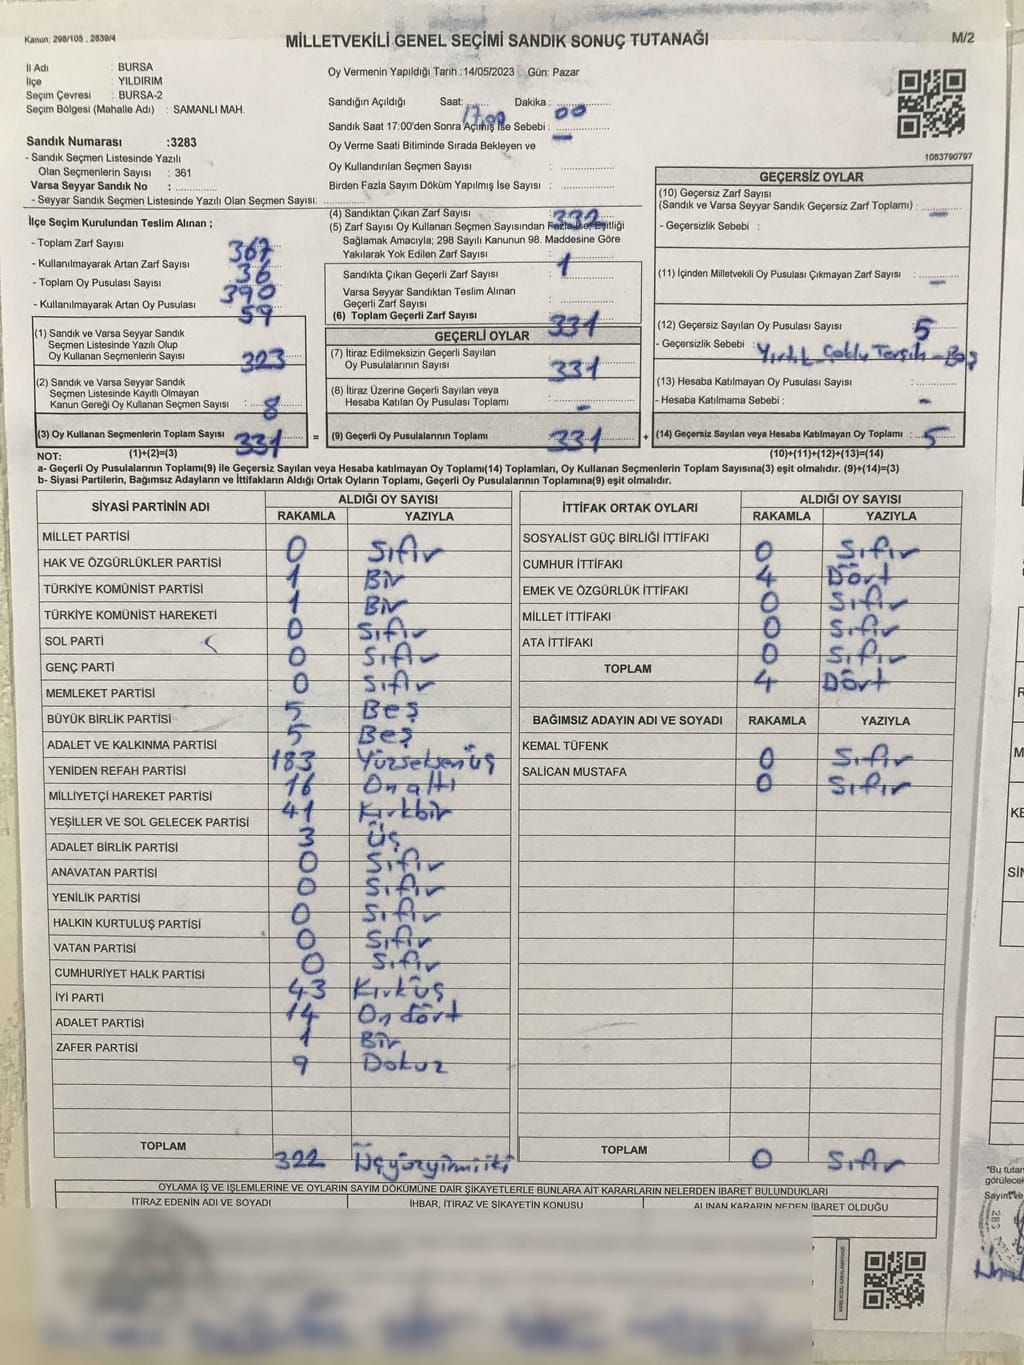 Kanun: 298/105 , 2839/4
MİLLETVEKİLİ GENEL SEÇİMİ SANDIK SONUÇ TUTANAĞI
M/2
İl Adı : BURSA
İlçe : YILDIRIM
Seçim Çevresi : BURSA-2
Seçim Bölgesi (Mahalle Adı) : SAMANLI MAH.
Sandık Numarası :3283
- Sandık Seçmen Listesinde Yazılı
Olan Seçmenlerin Sayısı : 361
Varsa Seyyar Sandık No :
- Seyyar Sandık Seçmen Listesinde Yazılı Olan Seçmen Sayısı:
Oy Vermenin Yapıldığı Tarih :14/05/2023 Gün: Pazar
Sandığın Açıldığı Saat: 17,00 Dakika : 00
Sandık Saat 17:00'den Sonra Açılmış İse Sebebi : —
Oy Verme Saati Bitiminde Sırada Bekleyen ve
Oy Kullandırılan Seçmen Sayısı :
Birden Fazla Sayım Döküm Yapılmış İse Sayısı :
1083790797
İlçe Seçim Kurulundan Teslim Alınan ;
- Toplam Zarf Sayısı 367
- Kullanılmayarak Artan Zarf Sayısı 36
- Toplam Oy Pusulası Sayısı 390
- Kullanılmayarak Artan Oy Pusulası 59
(1) Sandık ve Varsa Seyyar Sandık
Seçmen Listesinde Yazılı Olup
Oy Kullanan Seçmenlerin Sayısı 323
(2) Sandık ve Varsa Seyyar Sandık
Seçmen Listesinde Kayıtlı Olmayan
Kanun Gereği Oy Kullanan Seçmen Sayısı : 8
(3) Oy Kullanan Seçmenlerin Toplam Sayısı 331 =
(4) Sandıktan Çıkan Zarf Sayısı 332
(5) Zarf Sayısı Oy Kullanan Seçmen Sayısından Fazla İse, Eşitliği
Sağlamak Amacıyla; 298 Sayılı Kanunun 98. Maddesine Göre
Yakılarak Yok Edilen Zarf Sayısı : 1
Sandıkta Çıkan Geçerli Zarf Sayısı
Varsa Seyyar Sandıktan Teslim Alınan
Geçerli Zarf Sayısı
(6) Toplam Geçerli Zarf Sayısı 331
GEÇERLİ OYLAR
(7) İtiraz Edilmeksizin Geçerli Sayılan
Oy Pusulalarının Sayısı 331
(8) İtiraz Üzerine Geçerli Sayılan veya
Hesaba Katılan Oy Pusulası Toplamı —
(9) Geçerli Oy Pusulalarının Toplamı 331 +
GEÇERSİZ OYLAR
(10) Geçersiz Zarf Sayısı
(Sandık ve Varsa Seyyar Sandık Geçersiz Zarf Toplamı) : —
- Geçersizlik Sebebi :
(11) İçinden Milletvekili Oy Pusulası Çıkmayan Zarf Sayısı : —
(12) Geçersiz Sayılan Oy Pusulası Sayısı : 5
- Geçersizlik Sebebi : Yırtık - Çoklu Tercih - Boş
(13) Hesaba Katılmayan Oy Pusulası Sayısı :
- Hesaba Katılmama Sebebi : —
(14) Geçersiz Sayılan veya Hesaba Katılmayan Oy Toplamı : 5
NOT: (1)+(2)=(3) (10)+(11)+(12)+(13)=(14)
a- Geçerli Oy Pusulalarının Toplamı(9) ile Geçersiz Sayılan veya Hesaba katılmayan Oy Toplamı(14) Toplamları, Oy Kullanan Seçmenlerin Toplam Sayısına(3) eşit olmalıdır. (9)+(14)=(3)
b- Siyasi Partilerin, Bağımsız Adayların ve İttifakların Aldığı Ortak Oyların Toplamı, Geçerli Oy Pusulalarının Toplamına(9) eşit olmalıdır.
SİYASİ PARTİNİN ADI ALDIĞI OY SAYISI
RAKAMLA YAZIYLA
MİLLET PARTİSİ 0 Sıfır
HAK VE ÖZGÜRLÜKLER PARTİSİ 1 Bir
TÜRKİYE KOMÜNİST PARTİSİ 1 Bir
TÜRKİYE KOMÜNİST HAREKETİ 0 Sıfır
SOL PARTİ 0 Sıfır
GENÇ PARTİ 0 Sıfır
MEMLEKET PARTİSİ 5 Beş
BÜYÜK BİRLİK PARTİSİ 5 Beş
ADALET VE KALKINMA PARTİSİ 183 Yüzseksenüç
YENİDEN REFAH PARTİSİ 16 On altı
MİLLİYETÇİ HAREKET PARTİSİ 41 Kırkbir
YEŞİLLER VE SOL GELECEK PARTİSİ 3 Üç
ADALET BİRLİK PARTİSİ 0 Sıfır
ANAVATAN PARTİSİ 0 Sıfır
YENİLİK PARTİSİ 0 Sıfır
HALKIN KURTULUŞ PARTİSİ 0 Sıfır
VATAN PARTİSİ 0 Sıfır
CUMHURİYET HALK PARTİSİ 43 Kırküç
İYİ PARTİ 14 On dört
ADALET PARTİSİ 1 Bir
ZAFER PARTİSİ 9 Dokuz
TOPLAM 322 Üçyüzyirmiiki
İTTİFAK ORTAK OYLARI ALDIĞI OY SAYISI
RAKAMLA YAZIYLA
SOSYALİST GÜÇ BİRLİĞİ İTTİFAKI 0 Sıfır
CUMHUR İTTİFAKI 4 Dört
EMEK VE ÖZGÜRLÜK İTTİFAKI 0 Sıfır
MİLLET İTTİFAKI 0 Sıfır
ATA İTTİFAKI 0 Sıfır
TOPLAM 4 Dört
BAĞIMSIZ ADAYIN ADI VE SOYADI RAKAMLA YAZIYLA
KEMAL TÜFENK 0 Sıfır
SALİCAN MUSTAFA 0 Sıfır
TOPLAM 0 Sıfır
OYLAMA İŞ VE İŞLEMLERİNE VE OYLARIN SAYIM DÖKÜMÜNE DAİR ŞİKAYETLERLE BUNLARA AİT KARARLARIN NELERDEN İBARET BULUNDUKLARI
İTİRAZ EDENİN ADI VE SOYADI İHBAR, İTİRAZ VE ŞİKAYETİN KONUSU ALINAN KARARIN NEDEN İBARET OLDUĞU
"Bu tutan
görülecek
Sayım ve